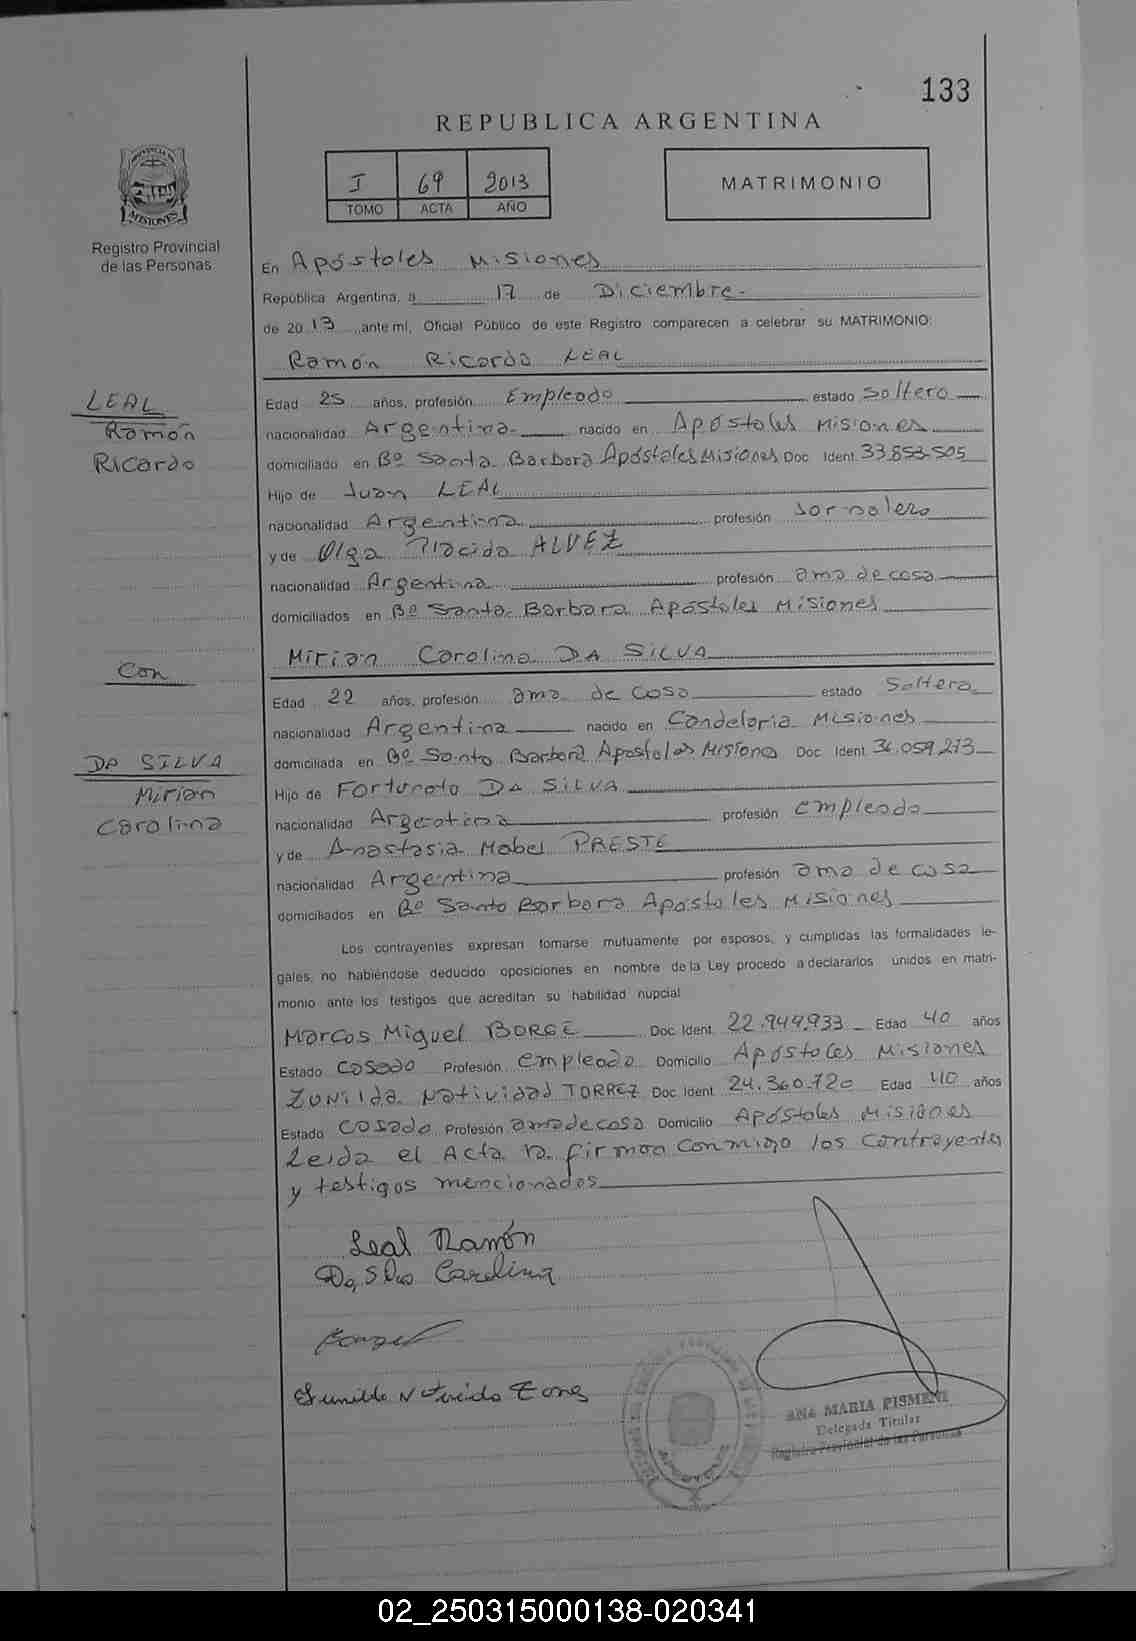 133
REPUBLICA ARGENTINA
I 69 2013
TOMO ACTA AÑO
MATRIMONIO
Registro Provincial
de las Personas
En Apóstoles Misiones
República Argentina, a 17 de Diciembre.
de 20 13 ante mí, Oficial Público de este Registro comparecen a celebrar su MATRIMONIO:
Ramón Ricardo LEAL
LEAL
Ramón
Ricardo
Edad 25 años, profesión Empleado estado Soltero
nacionalidad Argentina nacido en Apóstoles Misiones
domiciliado en Bº Santa Barbara Apóstoles Misiones Doc Ident. 33.853.505
Hijo de Juan LEAL
nacionalidad Argentina profesión Jornalero
y de Olga Placida ALVEZ
nacionalidad Argentina profesión ama de casa
domiciliados en Bº Santa Barbara Apóstoles Misiones
Mirian Carolina DA SILVA
Con
DA SILVA
Mirian
Carolina
Edad 22 años, profesión ama de casa estado Soltera
nacionalidad Argentina nacido en Candelaria Misiones
domiciliada en Bº Santa Barbara Apostoles Misiones Doc Ident. 36.059.273
Hijo de Fortunato DA SILVA
nacionalidad Argentina profesión empleado
y de Anastasia Mabel PRESTE
nacionalidad Argentina profesión ama de casa
domiciliados en Bº Santa Barbara Apóstoles Misiones
Los contrayentes expresan tomarse mutuamente por esposos, y cumplidas las formalidades le-
gales, no habiéndose deducido oposiciones en nombre de la Ley procedo a declararlos unidos en matri-
monio ante los testigos que acreditan su habilidad nupcial
Marcos Miguel BORGE Doc Ident. 22.949.933 Edad 40 años
Estado Casado Profesión empleado Domicilio Apóstoles Misiones
Zunilda Natividad TORREZ Doc Ident 24.360.720 Edad 40 años
Estado Casada Profesión ama de casa Domicilio Apóstoles Misiones
Leida el Acta la firman conmigo los contrayentes
y testigos mencionados
Leal Ramón
Da Silva Carolina
ANA MARIA PISMENI
Delegada Titular
Registro Provincial de las Personas
02_250315000138-020341